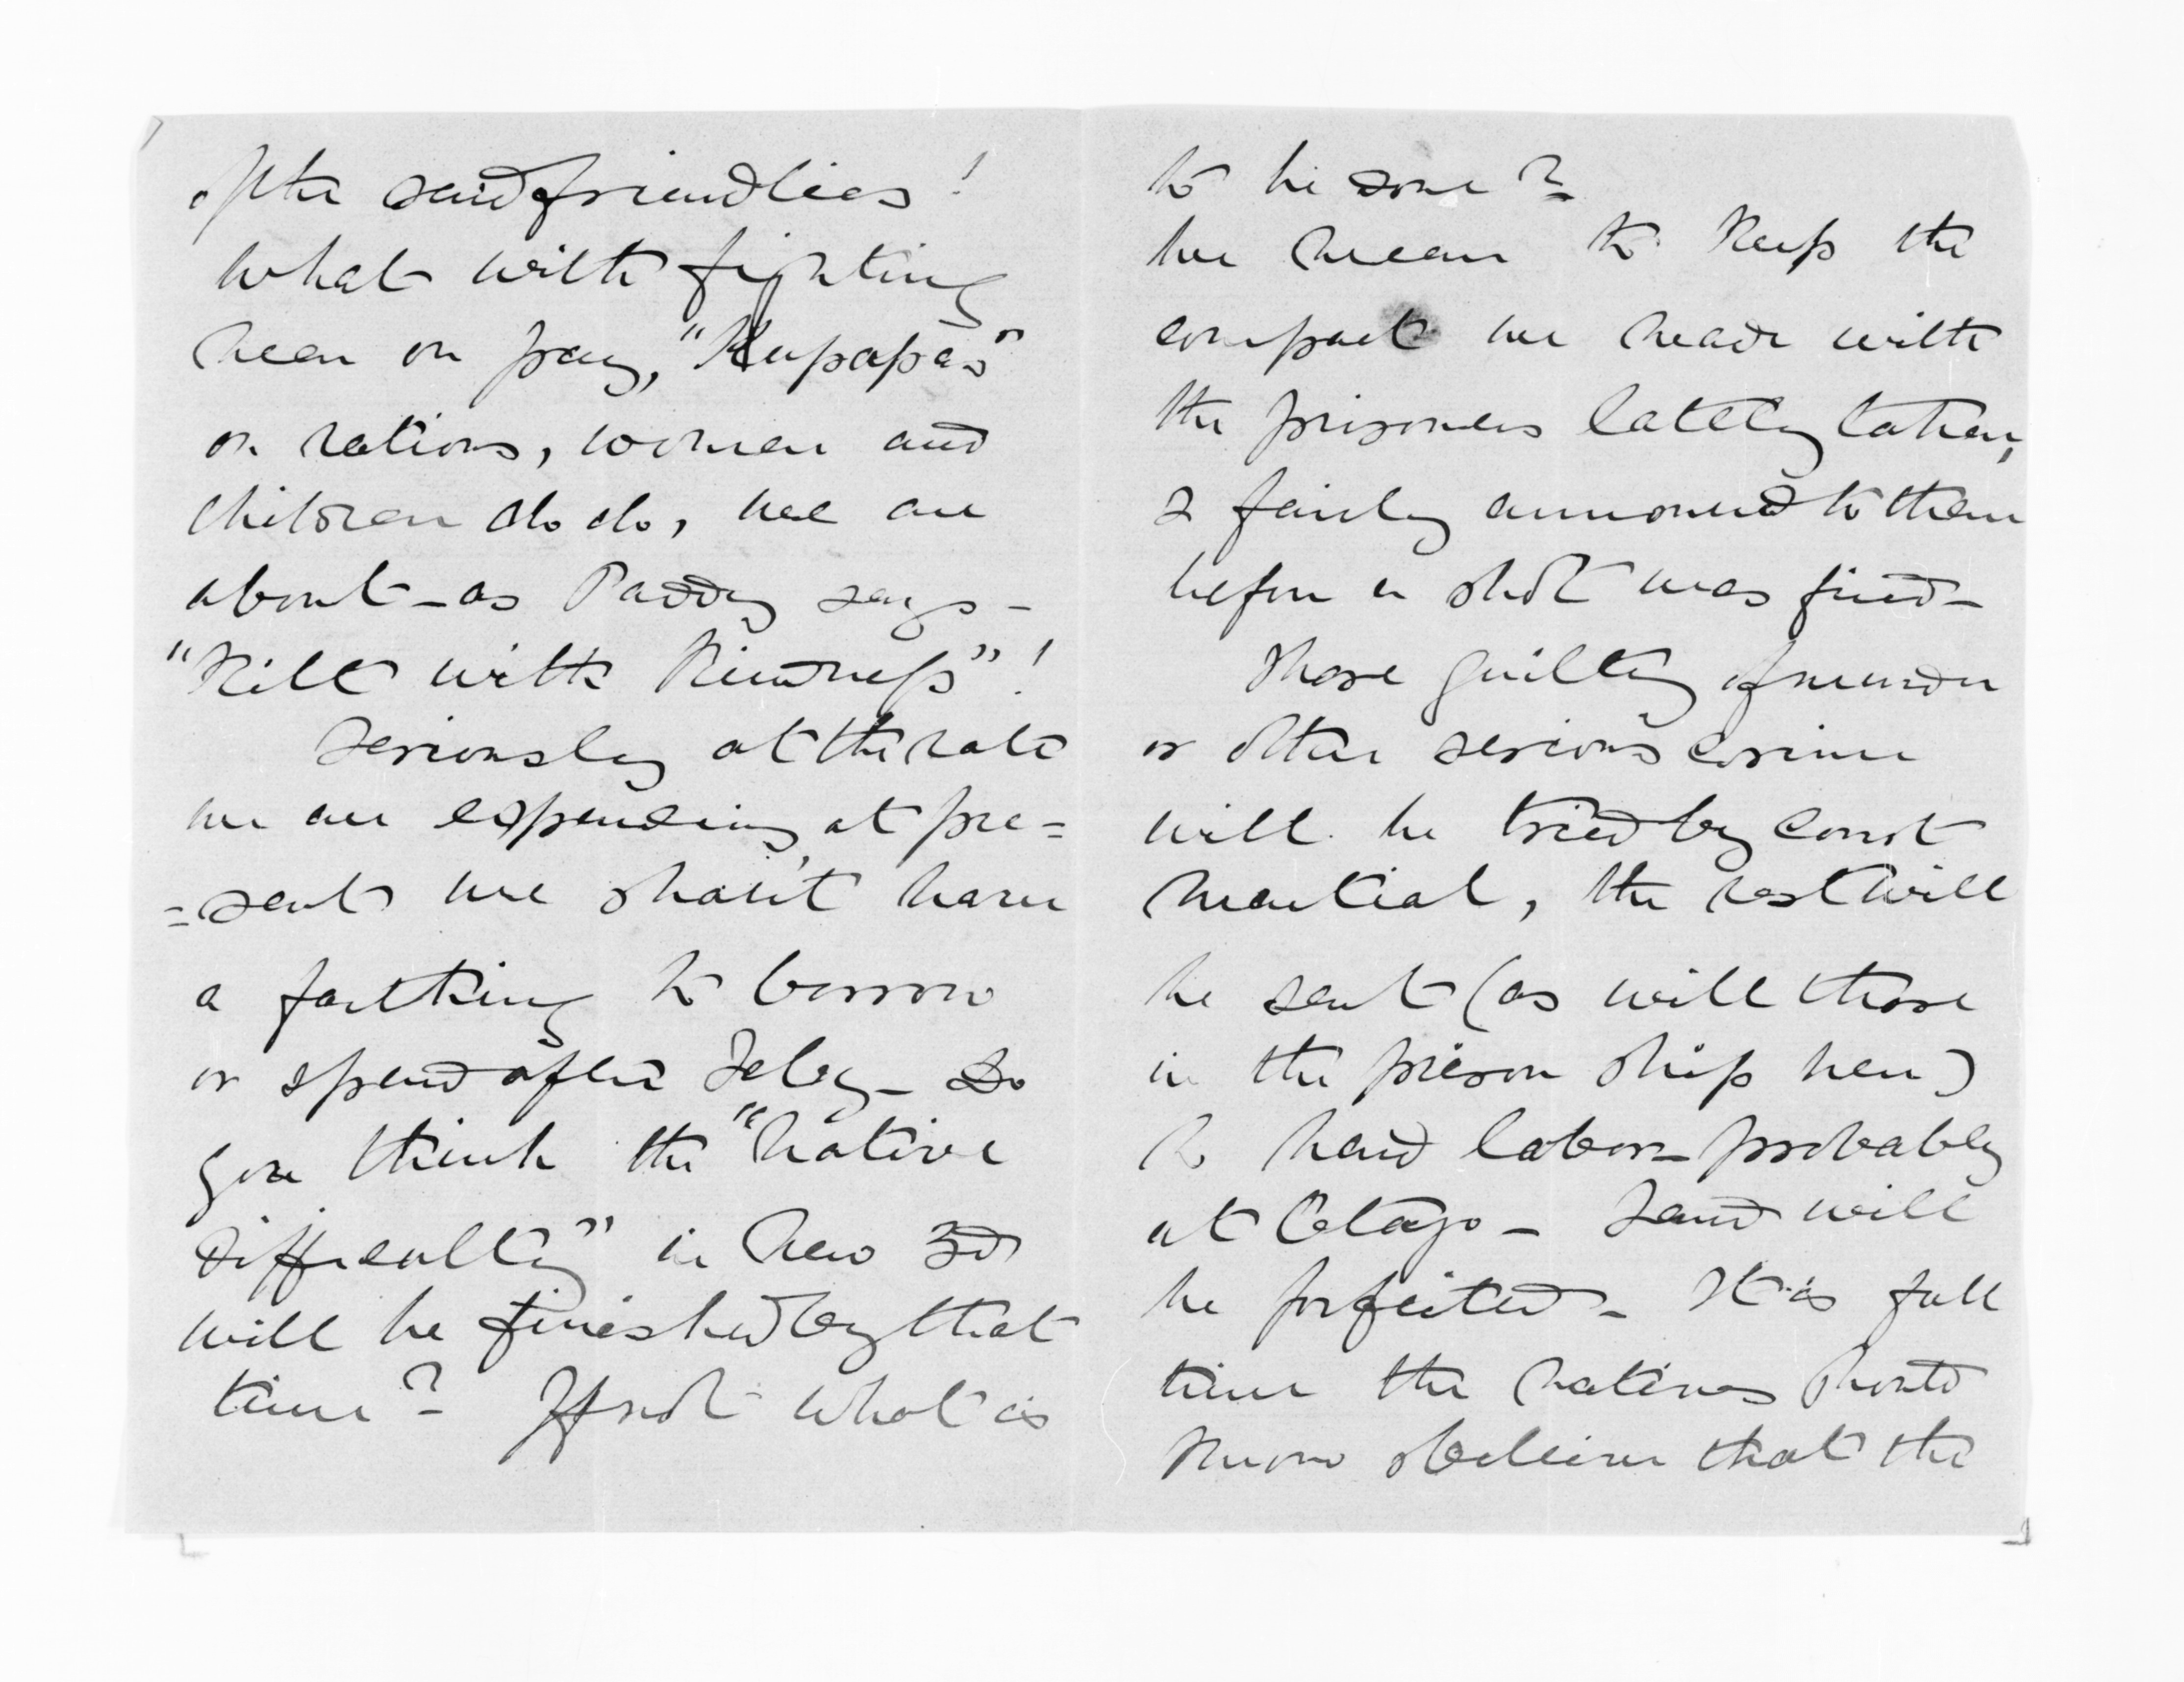 of the said friendlies!
What with fighting
men on pay, "Kupapas"
on rations, women and
children do do, we are
about - as Paddy says -
"Kilt with Kindness"!
Seriously at the rate
we are expending at pre=
=sent we shan't have
a farthing to borrow
or spend after July - Do
you think the "Native
difficulty" in New Zd
will be finished by that
time? - If not what is
to be done?
We mean to keep the
compact we made with
the prisoners lately taken,
& fairly announced to them
before a shot was fired -
Those guilty of murder
or other serious crime
will be tried by court
martial, the rest will
be sent (as will those
in the prison ship here)
to hard labor - probably
at Otago - Land will
be forfeited - It is full
time the natives should
know & believe that the